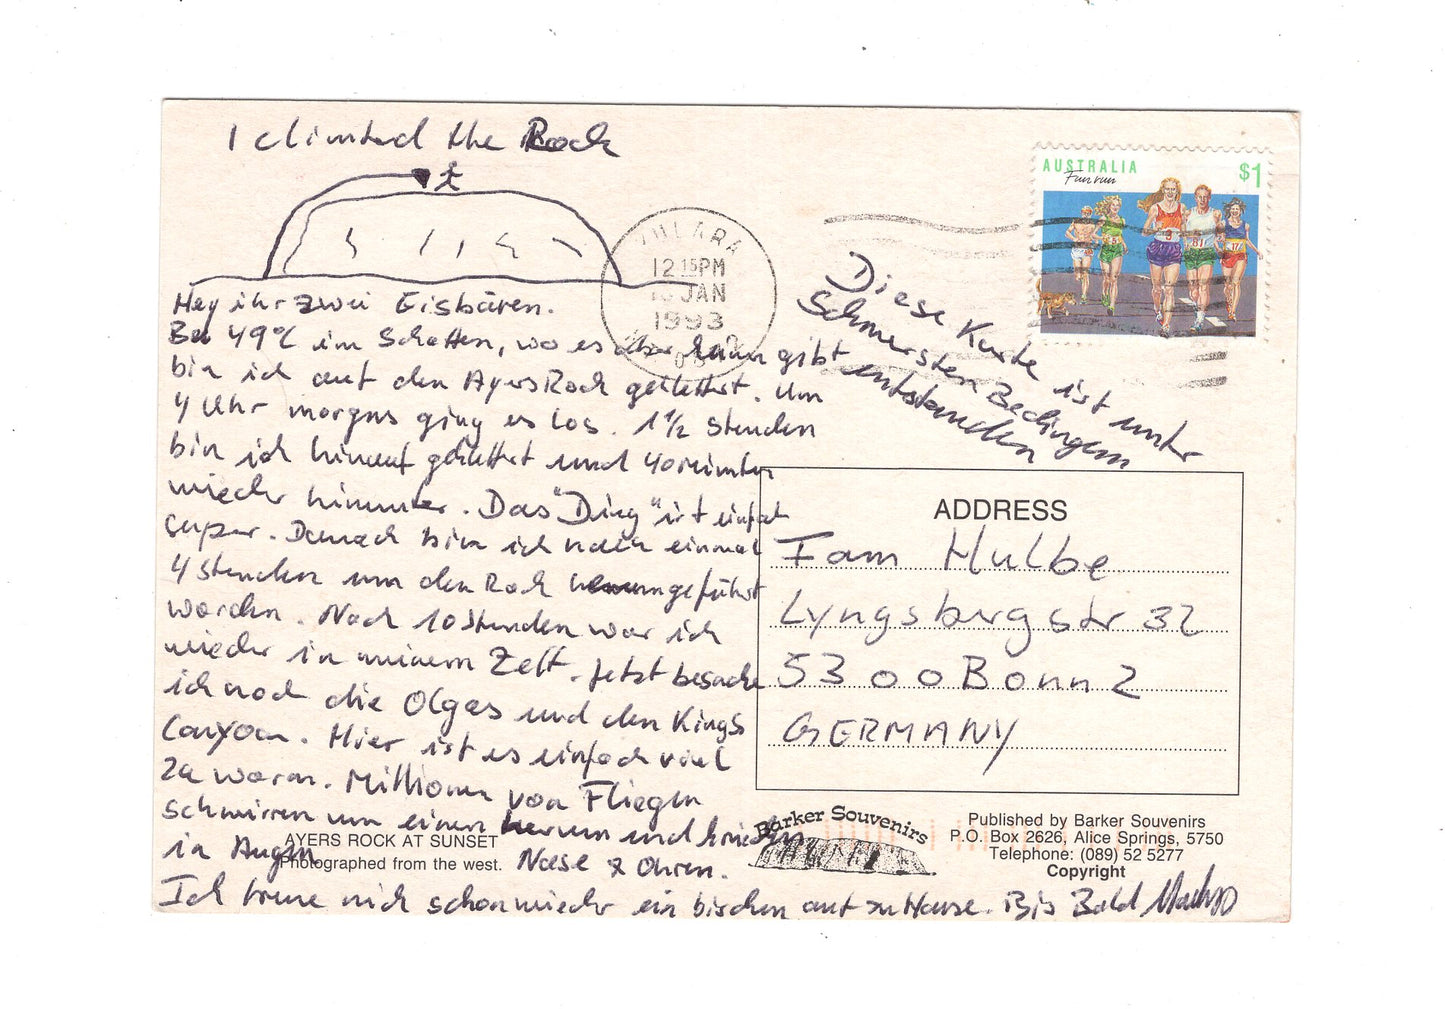 I climbed the Rock
Hey ihr zwei Eisbären.
Bei 49°C im Schatten, wo es aber kaum gibt
bin ich auf den Ayers Rock geklettert. Um
4 Uhr morgens ging es los. 1 1/2 Stunden
bin ich hinauf geklettert und 40 Minuten
wieder hinunter. Das "Ding" ist einfach
super. Danach bin ich noch einmal
4 Stunden um den Rock herumgeführt
worden. Nach 10 Stunden war ich
wieder in meinem Zelt. Jetzt besuche
ich noch die Olgas und den Kings
Canyon. Hier ist es einfach viel
zu warm. Millionen von Fliegen
schwirren um einen herum und kriechen
in Augen Nase & Ohren.
Ich freue mich schon wieder ein bischen auf zu Hause. Bis Bald
AYERS ROCK AT SUNSET
Photographed from the west.
YULARA
12 15PM
JAN
1993
AUSTRALIA
$1
Fun run
Diese Karte ist unter
Schwersten Bedingem
entstanden
ADDRESS
Fam Hulbe
Lyngsbergstr 32
5300 Bonn 2
GERMANY
Barker Souvenirs
Published by Barker Souvenirs
P.O. Box 2626, Alice Springs, 5750
Telephone: (089) 52 5277
Copyright